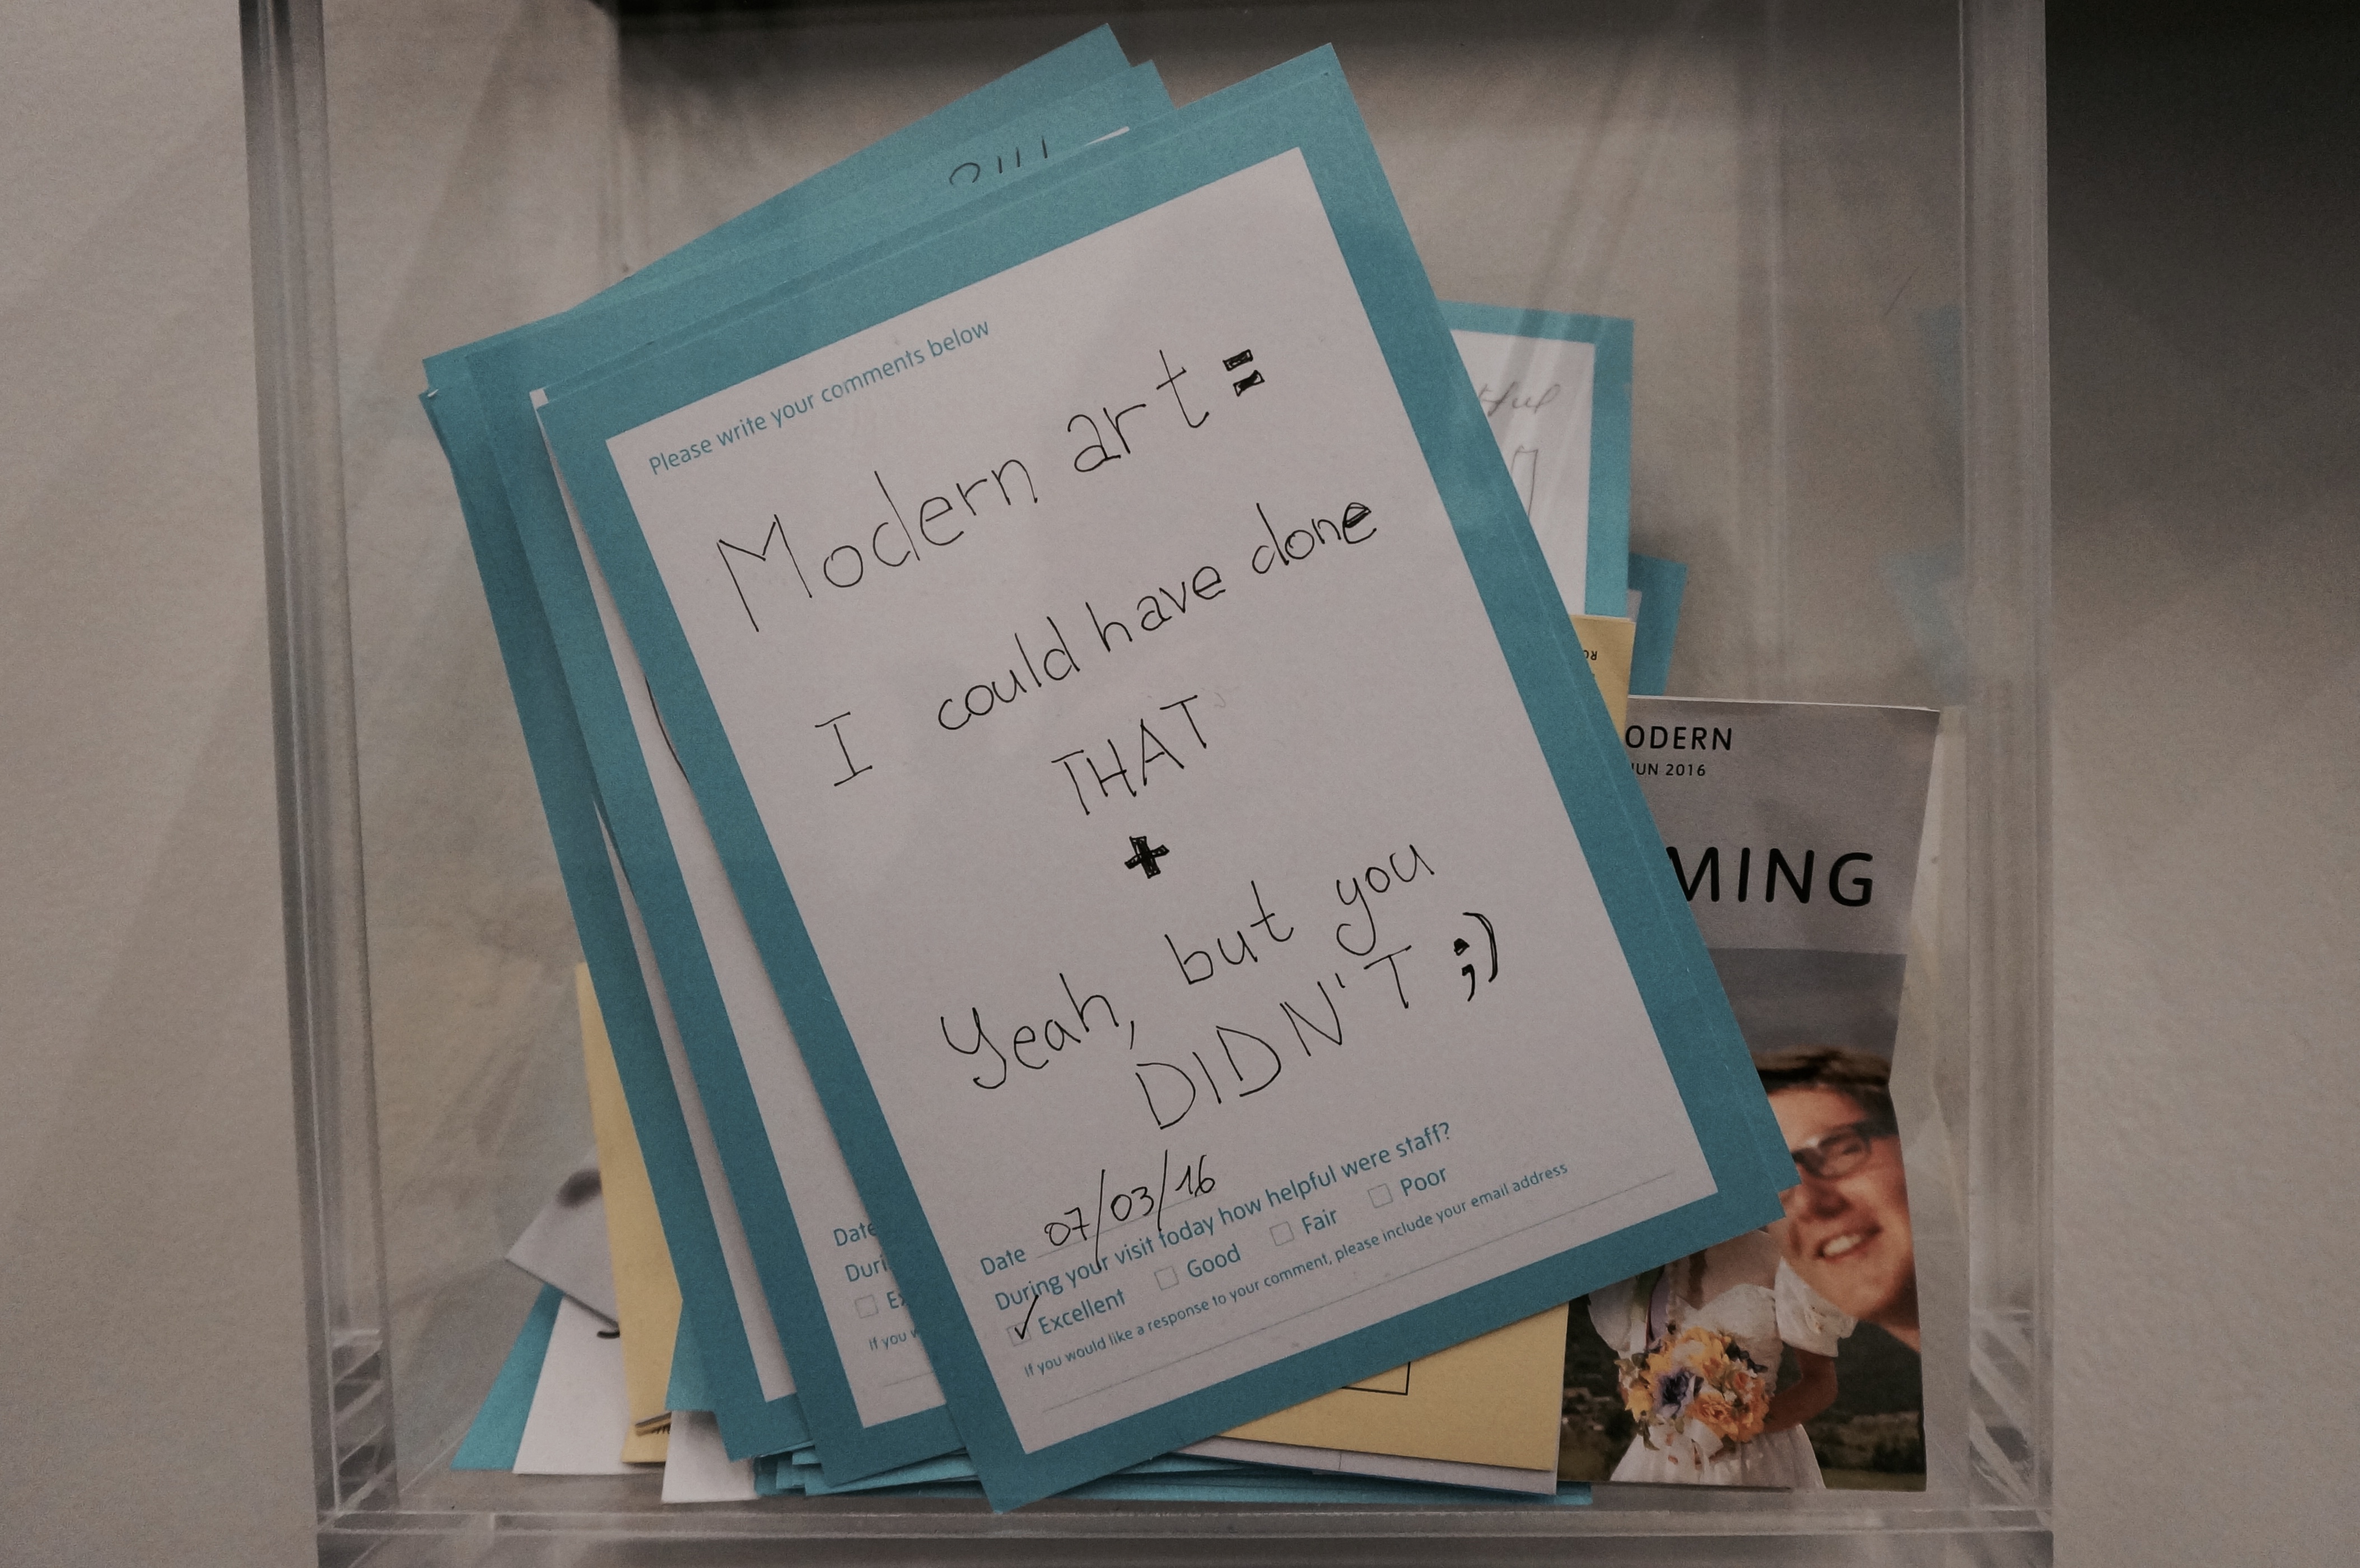 Please write your comments below
Modern art =
I could have done
THAT
+
Yeah, but you
DIDN'T ;)
Date 07/03/16
During your visit today how helpful were staff?
✓ Excellent Good Fair Poor
If you would like a response to your comment, please include your email address
Date
Duri
Ex
If you w
ODERN
JUN 2016
MING